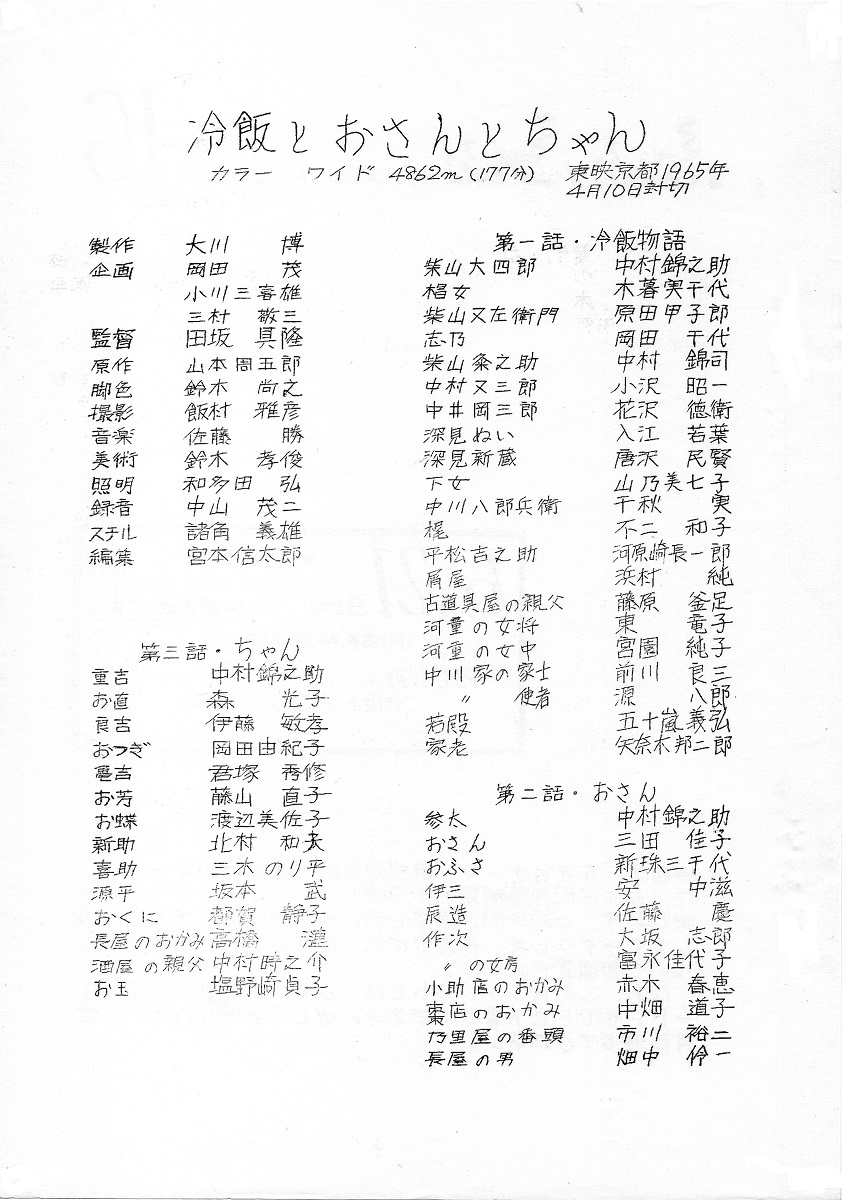 冷飯とおさんとちゃん
カラー ワイド 4862m(177分) 東映京都1965年
4月10日封切
製作 大川 博
企画 岡田 茂
小川三喜雄
三村 敬三
監督 田坂 具隆
原作 山本周五郎
脚色 鈴木 尚之
撮影 飯村 雅彦
音楽 佐藤 勝
美術 鈴木 孝俊
照明 和多田 弘
録音 中山 茂二
スチル 諸角 義雄
編集 宮本信太郎
第一話・冷飯物語
柴山大四郎 中村錦之助
椙女 木暮実千代
柴山又左衛門 原田甲子郎
志乃 岡田 千代
柴山粂之助 中村 錦司
中村又三郎 小沢 昭一
中井岡三郎 花沢 徳衛
深見ぬい 入江 若葉
深見新蔵 唐沢 民賢
下女 山乃美七子
中川八郎兵衛 千秋 実
梶 不二 和子
平松吉之助 河原崎長一郎
屑屋 浜村 純
古道具屋の親父 藤原 釜足
河重の女将 東 竜子
河重の女中 宮園 純子
中川家の家士 前川 良三
〃 使者 源 八郎
若殿 五十嵐義弘
家老 矢奈木邦二郎
第二話・おさん
参太 中村錦之助
おさん 三田 佳子
おふさ 新珠三千代
伊三 安 中滋
辰造 佐藤 慶
作次 大坂 志郎
〃の女房 富永佳代子
小助店のおかみ 赤木 春恵
棗店のおかみ 中畑 道子
乃里屋の番頭 市川 裕二
長屋の男 畑中 伶一
第三話・ちゃん
重吉 中村錦之助
お直 森 光子
良吉 伊藤 敏孝
おつぎ 岡田由紀子
亀吉 君塚 秀修
お芳 藤山 直子
お蝶 渡辺美佐子
新助 北村 和夫
喜助 三木 のり平
源平 坂本 武
おくに 都賀 静子
長屋のおかみ 高橋 漣
酒屋の親父 中村時之介
お玉 塩野崎貞子